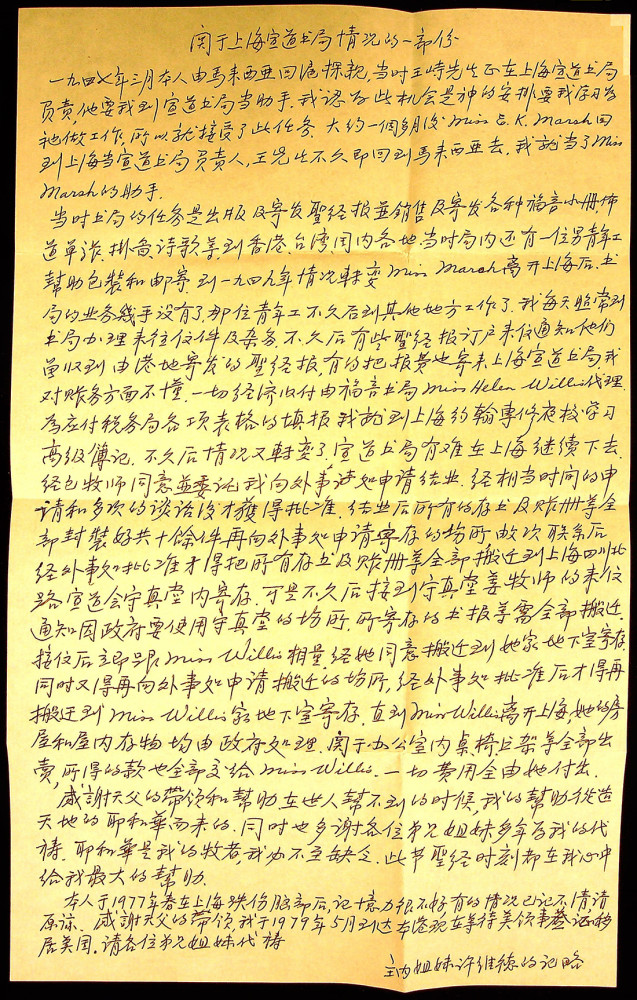 関于上海宣道书局情况的一部份
一九四七年三月本人由馬来西亜回滬探親，当时王峙先生正在上海宣道书局
负责，他要我到宣道书局当助手，我認为此机会是神的安排要我学习为
祂做工作，所以就接受了此任务，大约一個多月後 Miss E. K. Marsh 回
到上海当宣道书局负责人，王先生不久即回到馬来西亜去，我就当了 Miss
Marsh 的助手．
当时书局的任务是出版及寄发聖经报並销售及寄发各种福音小册，佈
道单张，掛图诗歌等，到香港、台湾、国内各地，当时局内还有一位男青年工
幫助包装和邮寄，到一九四九年情况転变 Miss Marsh 离开上海后，书
局的业务幾乎没有了，那位青年工不久后到其他地方工作了，我每天照常到
书局办理来往信件及杂务，不久后有些聖经报订户来信通知他们
曾收到由港地寄发的聖经报，有的把报费也寄来上海宣道书局，我
对账务方面不懂，一切经济收付由福音书局 Miss Helen Willis 代理
为应付税务局各项表格的填报我就到上海约翰専修夜校学习
高级簿记．不久后情况又転变了，宣道书局有难在上海继续下去，
经包牧师同意並委託我向外事处申请结业，经相当时间的申
请和多次的谈话後才獲得批准，结业后所有的存书及账册等全
部封装好共十餘件再向外事处申请寄存的场所，数次联系后
经外事处批准才得把所有存书及账册等全部搬迁到上海四川北
路宣道会守真堂内寄存．可是不久后接到守真堂姜牧师的来信
通知因政府要使用守真堂的场所，所寄存的书报等需全部搬迁．
接信后立即跟 Miss Willis 相量，经她同意搬迁到她家地下室寄存，
同时又得再向外事处申请搬迁的场所，经外事处批准后才得再
搬迁到 Miss Willis 家地下室寄存．直到 Miss Willis 离开上海，她的房
屋和屋内存物均由政府处理．関于办公室内桌椅书架等全部出
賣，所得的款也全部交给 Miss Willis．一切费用全由她付出．
感謝天父的带领和幫助在世人幫不到的时候，我的幫助從造
天地的耶和華而来的．同时也多謝各位弟兄姐妹多年为我的代
祷．耶和華是我的牧者，我必不至缺乏．此节聖经时刻都在我心中
给我最大的幫助．
本人于1977年春在上海跌伤脑部后，记憶力很不好，有的情况已记不清请
原谅．感謝天父的带领，我于1979年5月到达本港现在等待美领事签证移
居美国．请各位弟兄姐妹代祷
主内姐妹许维德的记略